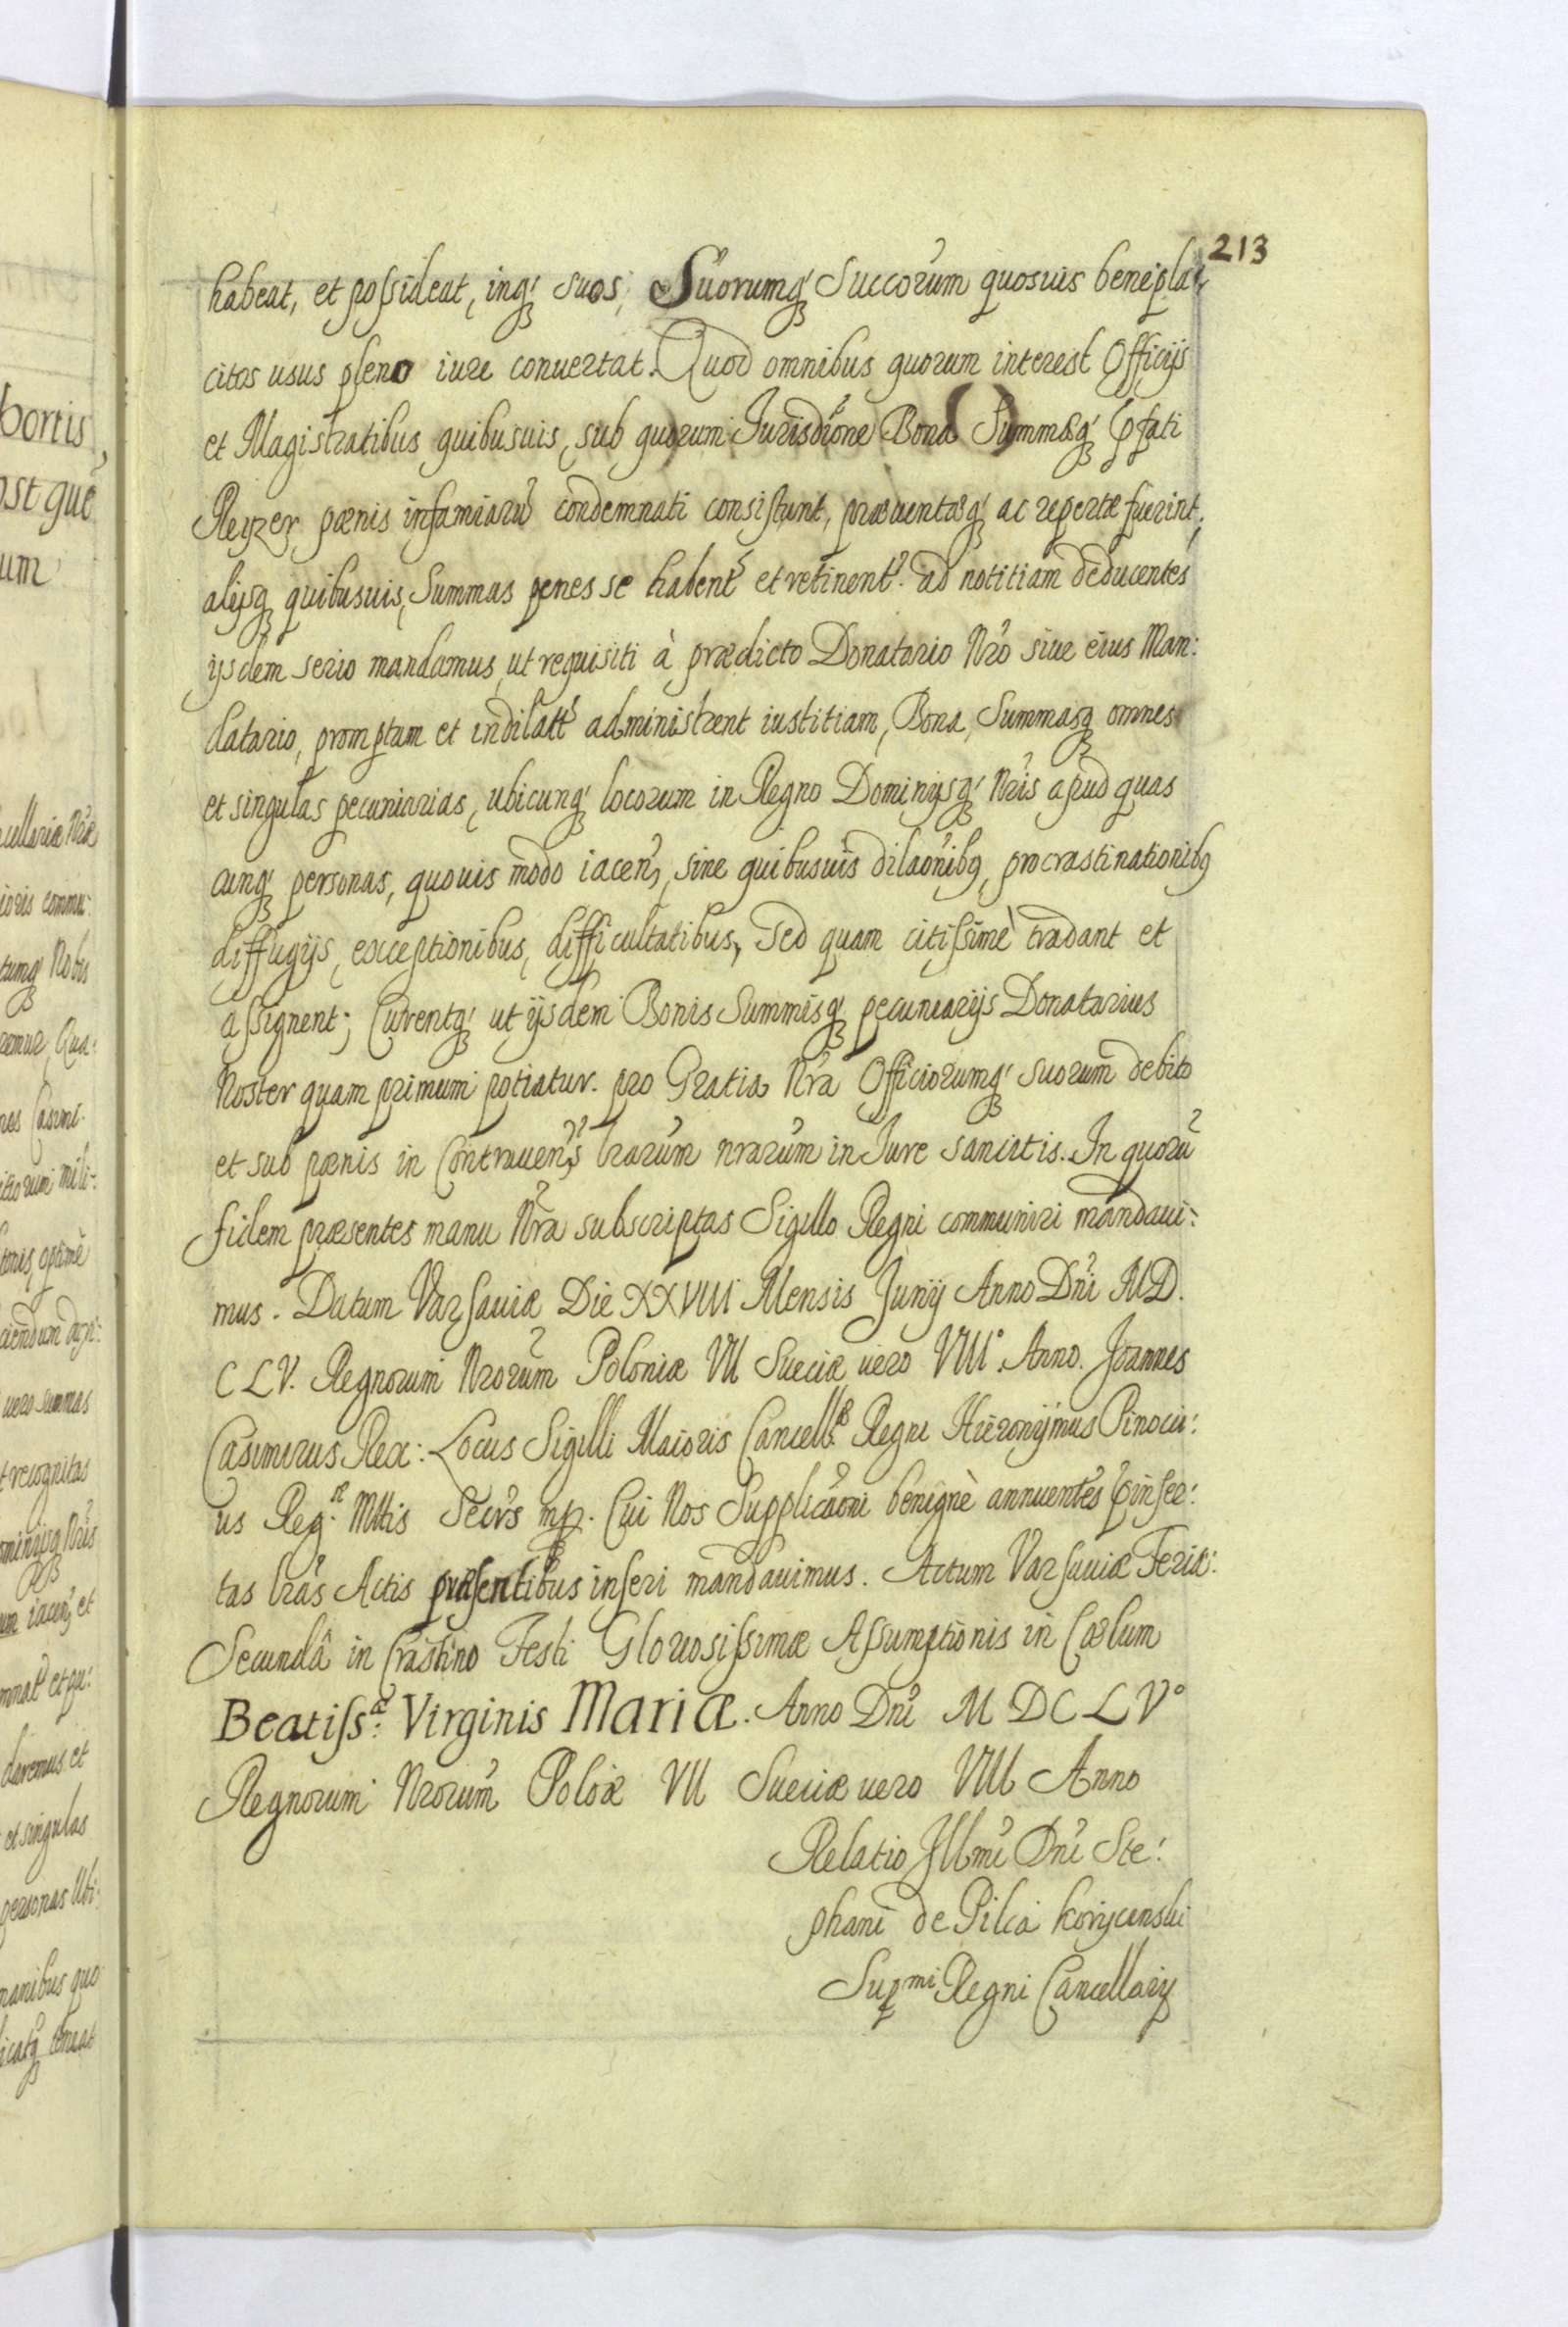 213
habeat, et possideat, inq́ꝫ suos, Suorumq́ꝫ Succorum quosuis benepla-
citos usus pleno iure conuertat. Quod omnibus quorum interest Officijs
et Magistratibus quibusuis, sub quorum Jurisdióne Bona Summæq́ꝫ pfati
Reyzer pœnis infamiarũ condemnati consistunt, præuentæq́ꝫ ac repertæ fuerint,
alijsqꝫ quibusuis, Summas penes se habent et retinent. ad notitiam deducentes
ijsdem serio mandamus, ut requisiti à prædicto Donatario Nro siue eius Man:
datario, promptam et indilatt administrent iustitiam, Bona, Summasqꝫ omnes
et singulas pecuniarias, ubicunq́ꝫ locorum in Regno Dominijsq́ꝫ Nris apud quas
cunq́ꝫ personas, quouis modo iacen, sine quibusuis dilaonibꝯ, procrastinationibꝯ
diffugijs, exceptionibus, difficultatibus, Sed quam citissimè tradant et
assignent; Curentq́ꝫ ut ijsdem Bonis Summisq́ꝫ pecuniarijs Donatarius
Noster quam primum potiatur. pro Gratia Nra Officiorumq́ꝫ suorum debito
et sub pœnis in Contrauens lrarum nrarum in Jure sancitis. In quorũ
fidem præsentes manu Nra subscriptas Sigillo Regni communiri mandaui:
mus. Datum Varsauiæ Die XXVIII Mensis Junij Anno Dni MD.
CLV. Regnorum Nrorum Poloniæ VII Sueciæ uero VIII° Anno. Joannes
Casimirus Rex: Locus Sigilli Maioris Cancellæ Regni Hieronymus Pinocci:
us Reg.æ Mttis Secrs mp. Cui Nos Supplicaoni benignè annuentes pinser:
tas lras Actis præsentibus inseri mandauimus. Actum Varsauiæ Feria:
Secundâ in Crastino Festi Gloriosissimæ Assumptionis in Cœlum
Beatiss.æ: Virginis Mariæ. Anno Dni M DC L V°
Regnorum Nrorum Poloæ VII Sueciæ uero VIII Anno
Relatio Illmi Dni Ste:
phani de Pilca Korycinski
Supmi Regni Cancellarij